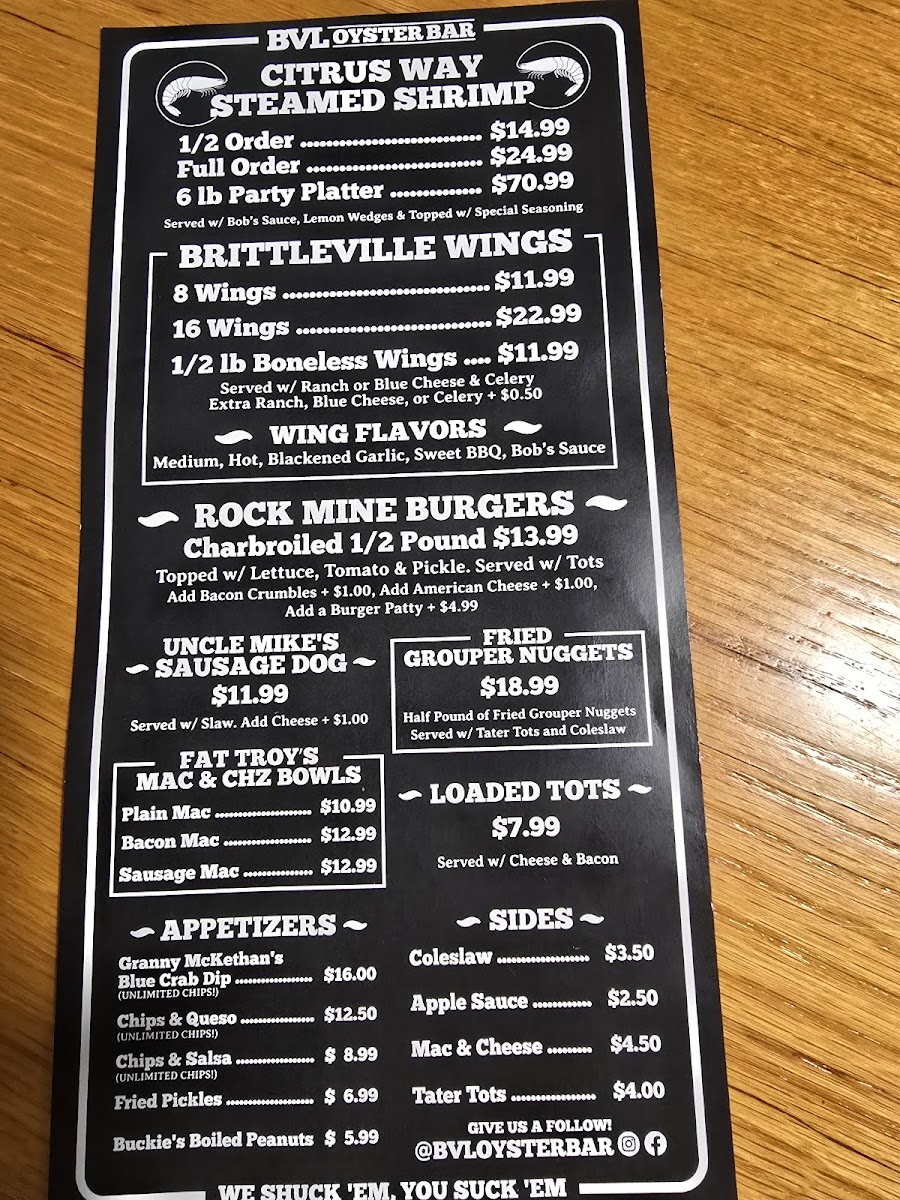 BVL OYSTER BAR
CITRUS WAY
STEAMED SHRIMP
1/2 Order ........ $14.99
Full Order ........ $24.99
6 lb Party Platter ........ $70.99
Served w/ Bob's Sauce, Lemon Wedges & Topped w/ Special Seasoning
BRITTLEVILLE WINGS
8 Wings ........ $11.99
16 Wings ........ $22.99
1/2 lb Boneless Wings .... $11.99
Served w/ Ranch or Blue Cheese & Celery
Extra Ranch, Blue Cheese, or Celery + $0.50
WING FLAVORS
Medium, Hot, Blackened Garlic, Sweet BBQ, Bob's Sauce
ROCK MINE BURGERS
Charbroiled 1/2 Pound $13.99
Topped w/ Lettuce, Tomato & Pickle. Served w/ Tots
Add Bacon Crumbles + $1.00, Add American Cheese + $1.00,
Add a Burger Patty + $4.99
UNCLE MIKE'S
SAUSAGE DOG
$11.99
Served w/ Slaw. Add Cheese + $1.00
FRIED
GROUPER NUGGETS
$18.99
Half Pound of Fried Grouper Nuggets
Served w/ Tater Tots and Coleslaw
FAT TROY'S
MAC & CHZ BOWLS
Plain Mac ........ $10.99
Bacon Mac ........ $12.99
Sausage Mac ........ $12.99
LOADED TOTS
$7.99
Served w/ Cheese & Bacon
APPETIZERS
Granny McKethan's
Blue Crab Dip ........ $16.00
(UNLIMITED CHIPS!)
Chips & Queso ........ $12.50
(UNLIMITED CHIPS!)
Chips & Salsa ........ $ 8.99
(UNLIMITED CHIPS!)
Fried Pickles ........ $ 6.99
Buckie's Boiled Peanuts $ 5.99
SIDES
Coleslaw ........ $3.50
Apple Sauce ........ $2.50
Mac & Cheese ........ $4.50
Tater Tots ........ $4.00
GIVE US A FOLLOW!
@BVLOYSTERBAR
WE SHUCK 'EM, YOU SUCK 'EM